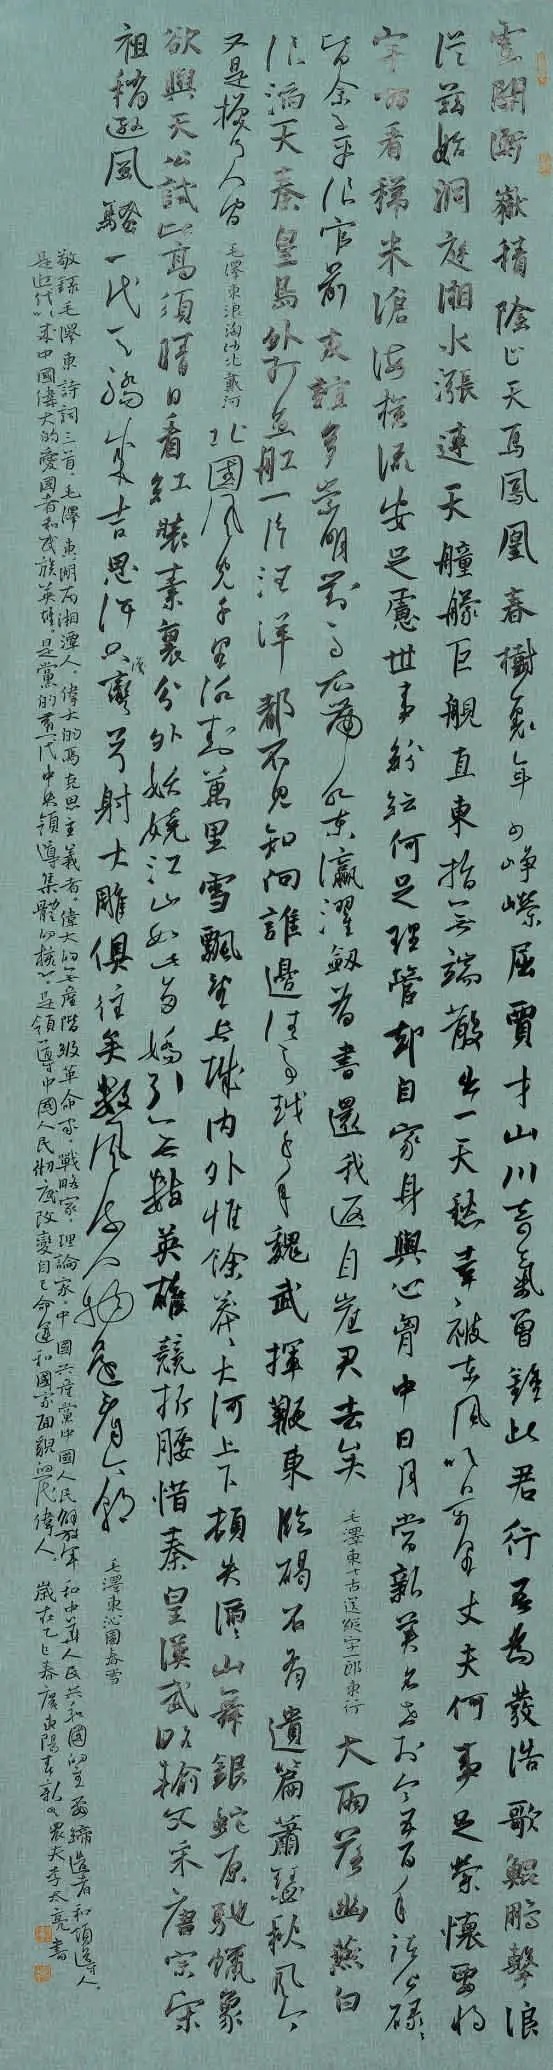 雲開衡嶽積陰止天馬鳳凰春樹裏年少崢嶸屈賈才山川奇氣曾鍾此君行吾為發浩歌鯤鵬擊浪
從茲始洞庭湘水漲連天艟艨巨艦直東指無端散出一天愁幸被東風吹萬里丈夫何事足縈懷要將
宇宙看稊米滄海橫流安足慮世事紛紜何足理管却自家身與心胸中日月常新美名世於今五百年諸公碌碌
皆余子平浪宮前友誼多崇明對馬衣帶水東瀛濯劍有書還我返自崖君去矣 毛澤東七古送縱宇一郎東行 大雨落幽燕白
浪滔天秦皇島外打魚船一片汪洋都不見知向誰邊往事越千年魏武揮鞭東臨碣石有遺篇蕭瑟秋風今
又是換了人間 毛澤東浪淘沙北戴河 北國風光千里冰封萬里雪飄望長城內外惟餘莽莽大河上下頓失滔滔山舞銀蛇原馳蠟象
欲與天公試比高須晴日看紅裝素裹分外妖嬈江山如此多嬌引無數英雄競折腰惜秦皇漢武略輸文采唐宗宋
祖稍遜風騷一代天驕成吉思汗只識彎弓射大雕俱往矣數風流人物還看今朝 毛澤東沁園春雪
敬錄毛澤東詩詞三首，毛澤東湖南湘潭人。偉大的馬克思主義者，偉大的無產階級革命家，戰略家，理論家，中國共產黨中國人民解放軍和中華人民共和國的主要締造者和領導人。
是近代以來中國偉大的愛國者和民族英雄，是黨的第一代中央領導集體的核心，是領導中國人民徹底改變自己命運和國家面貌的一代偉人。 歲在乙巳春廣東陽春農夫李太亮書